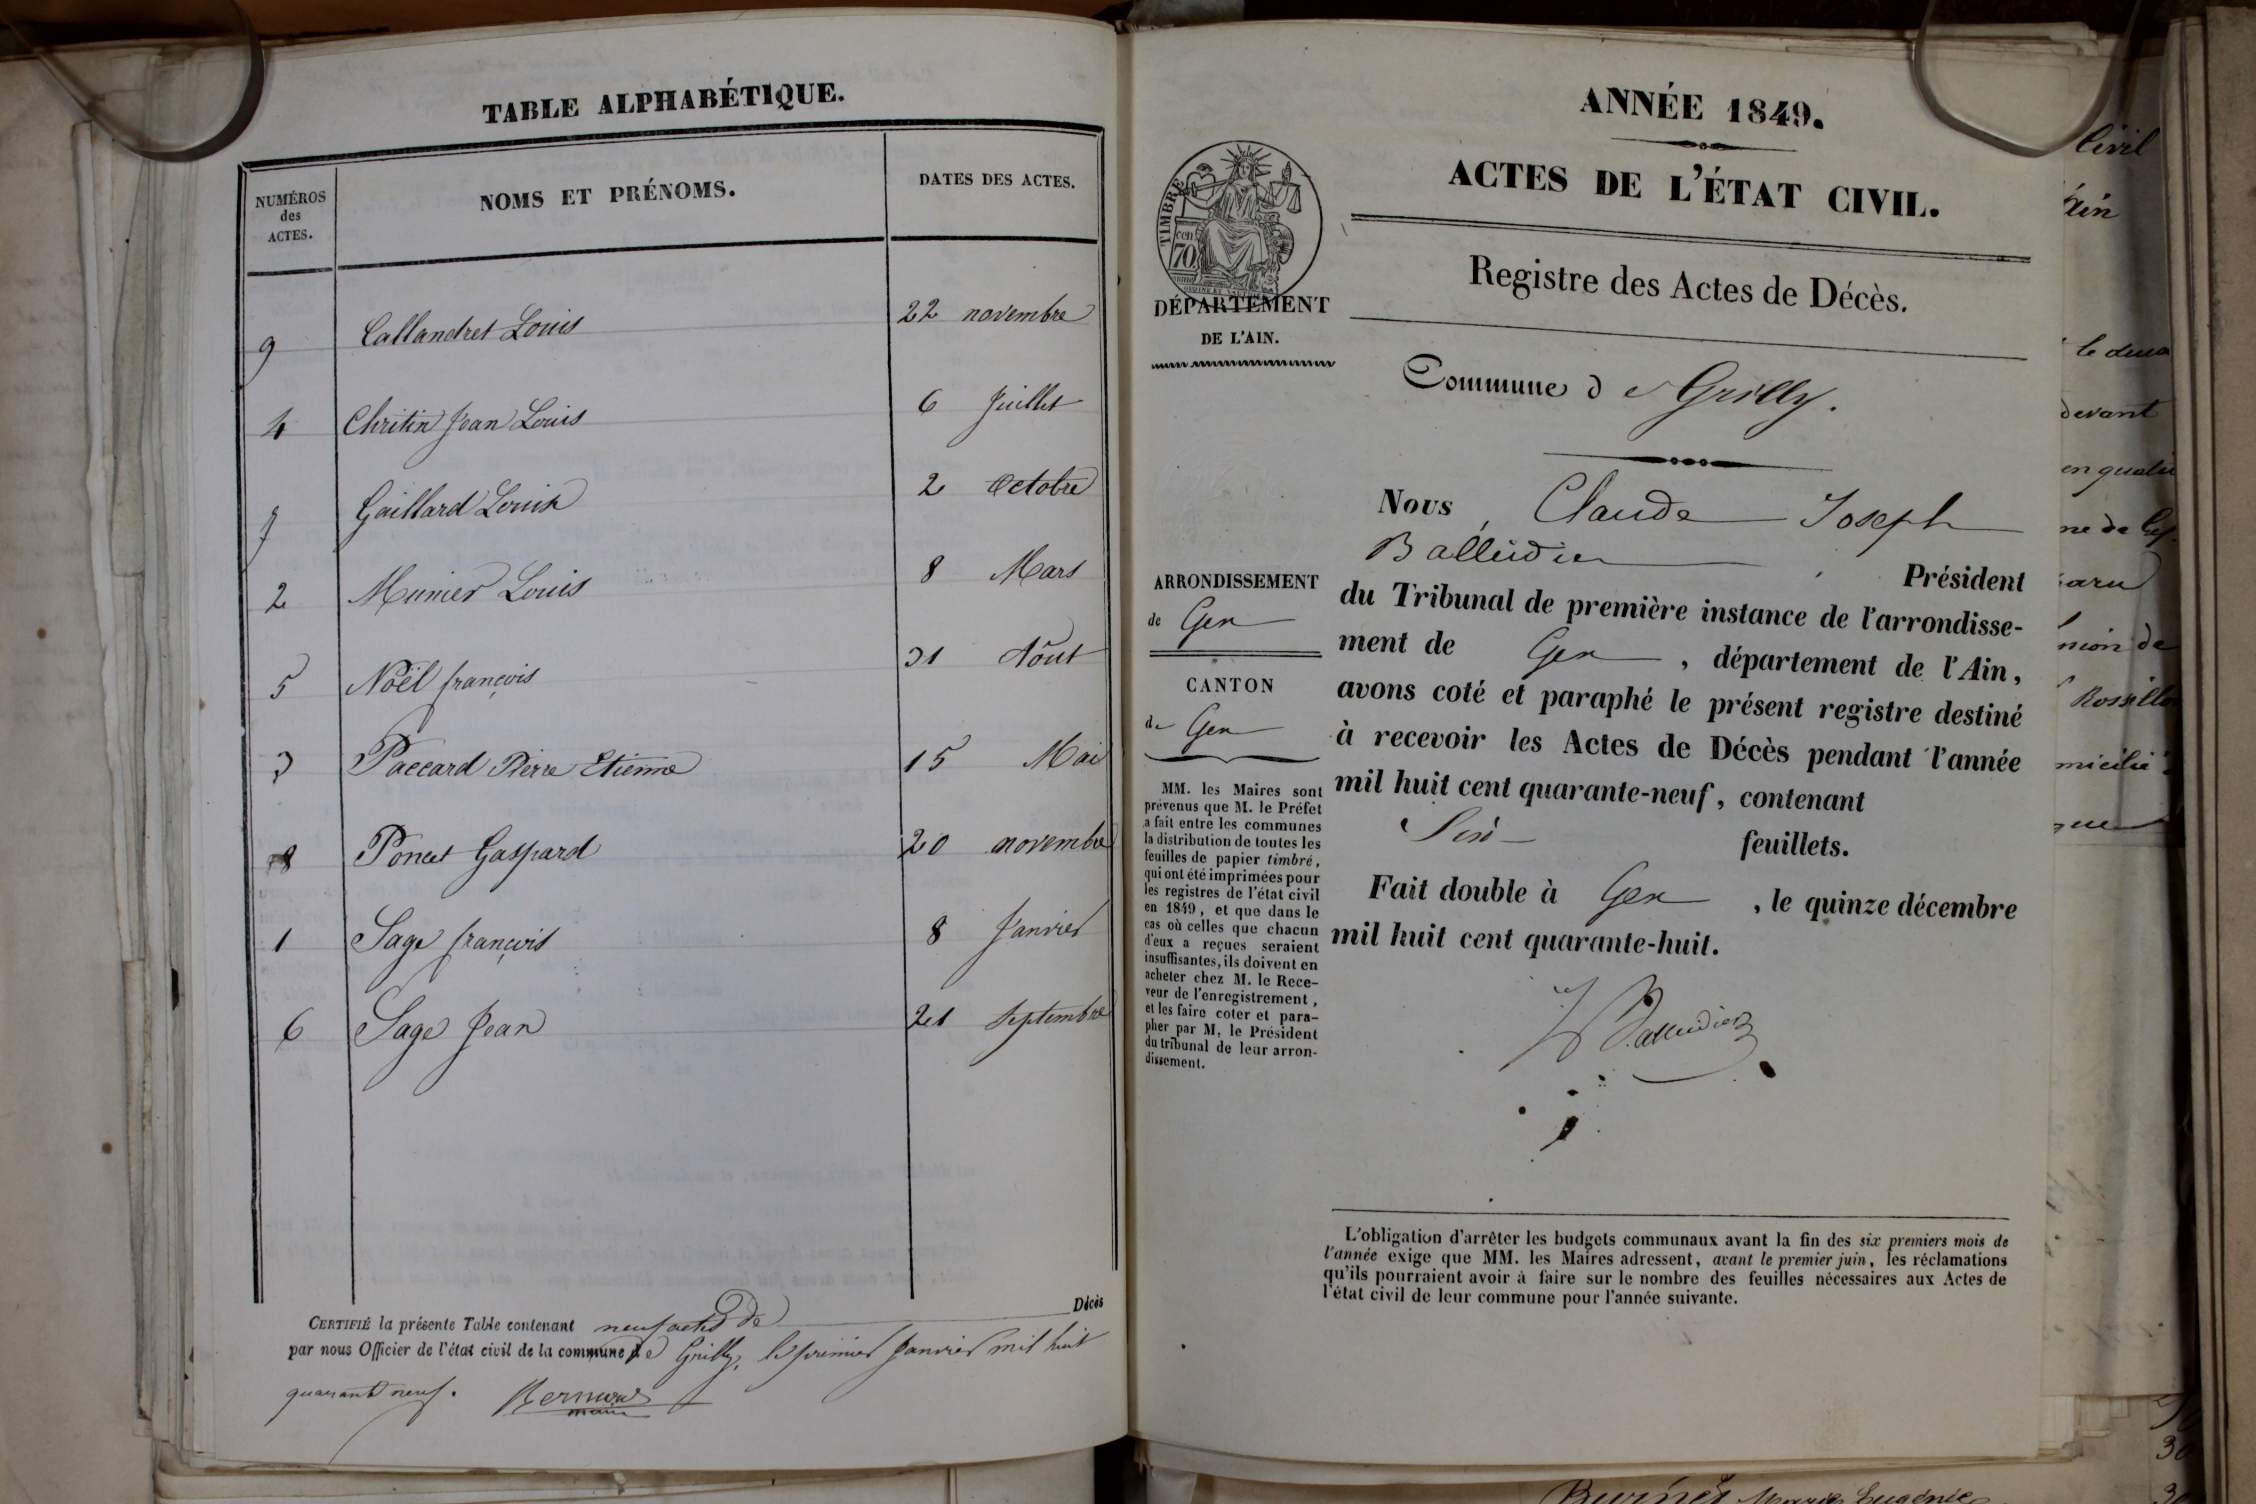 TABLE ALPHABÉTIQUE.
NUMÉROS des ACTES. NOMS ET PRÉNOMS. DATES DES ACTES.
9 Callandret Louis 22 novembre
4 Chritin Jean Louis 6 Juillet
7 Gaillard Louis 2 Octobre
2 Munier Louis 8 Mars
5 Noël françois 31 Aôut
3 Paccard Pierre Etienne 15 Mai
8 Poncet Gaspard 20 novembre
1 Sage françois 8 Janvier
6 Sage Jean 21 Septembre
CERTIFIÉ la présente Table contenant neuf actes de Décès
par nous Officier de l'état civil de la commune de Grilly, le premier Janvier mil huit
quarante neuf.
maire
ANNÉE 1849.
ACTES DE L'ÉTAT CIVIL.
Registre des Actes de Décès.
TIMBRE
cen
70
DÉPARTEMENT
DE L'AIN.
Commune de Grilly.
ARRONDISSEMENT
de Gex
CANTON
de Gex
MM. les Maires sont
prévenus que M. le Préfet
a fait entre les communes
la distribution de toutes les
feuilles de papier timbré,
qui ont été imprimées pour
les registres de l'état civil
en 1849, et que dans le
cas où celles que chacun
d'eux a reçues seraient
insuffisantes, ils doivent en
acheter chez M. le Rece-
veur de l'enregistrement,
et les faire coter et para-
pher par M. le Président
du tribunal de leur arron-
dissement.
Nous, Claude Joseph
Balleidier Président
du Tribunal de première instance de l'arrondisse-
ment de Gex, département de l'Ain,
avons coté et paraphé le présent registre destiné
à recevoir les Actes de Décès pendant l'année
mil huit cent quarante-neuf, contenant
Six feuillets.
Fait double à Gex, le quinze décembre
mil huit cent quarante-huit.
Balleidier
L'obligation d'arrêter les budgets communaux avant la fin des six premiers mois de
l'année exige que MM. les Maires adressent, avant le premier juin, les réclamations
qu'ils pourraient avoir à faire sur le nombre des feuilles nécessaires aux Actes de
l'état civil de leur commune pour l'année suivante.
Civil
devant